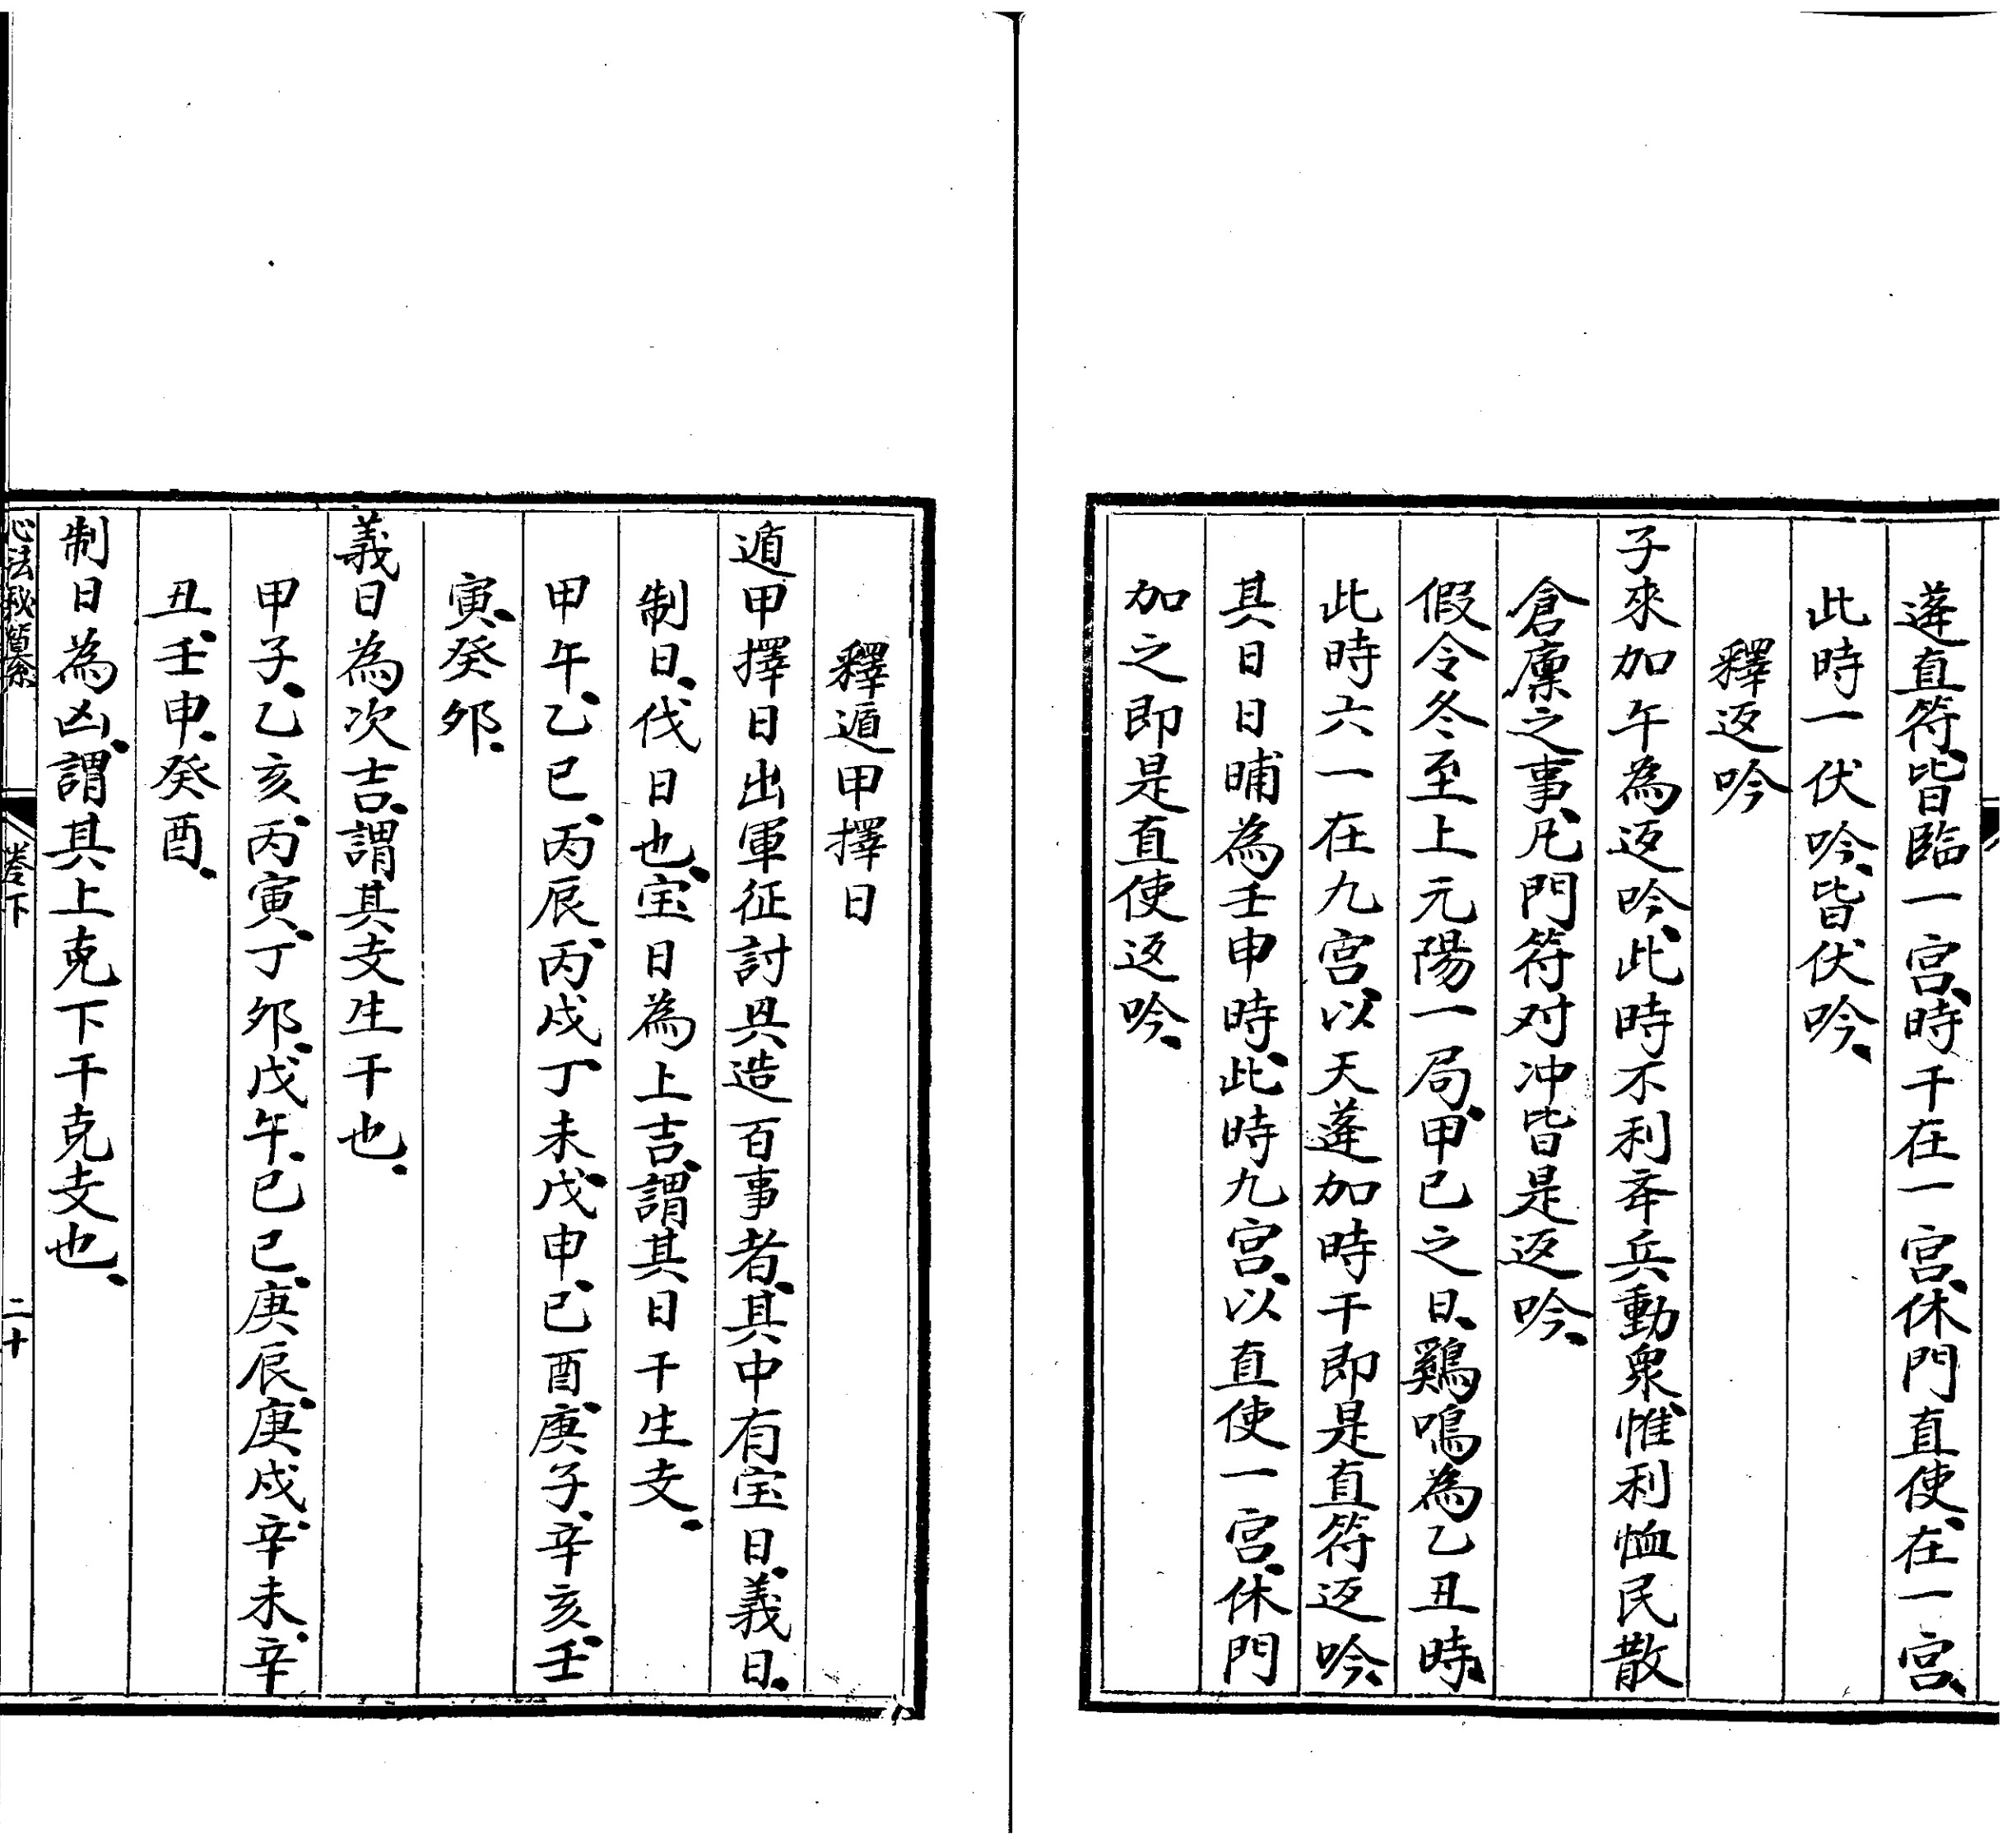 蓬直符、皆臨一宫、時干在一宫、休門直使、在一宫、
此時一伏吟、皆伏吟、
釋返吟
子來加午為返吟、此時不利斉兵動衆、惟利恤民散
倉廩之事、凡門符对冲皆是返吟、
假令冬至上元陽一局、甲己之日、鷄鳴為乙丑時、
此時六一在九宫、以天蓬加時干即是直符返吟、
其日日晡為壬申時、此時九宫、以直使一宫、休門
加之即是直使返吟、
釋遁甲擇日
遁甲擇日出軍征討具造百事者、其中有宝日、義日、
制日、伐日也、宝日為上吉、謂其日干生支、
甲午、乙巳、丙辰、丙戍、丁未、戊申、己酉、庚子、辛亥、壬
寅、癸卯、
義日為次吉、謂其支生干也、
甲子、乙亥、丙寅、丁卯、戊午、己巳、庚辰、庚戍、辛未、辛
丑、壬申、癸酉、
制日為凶、謂其上克下干克支也、
心法秘纂
卷下
二十